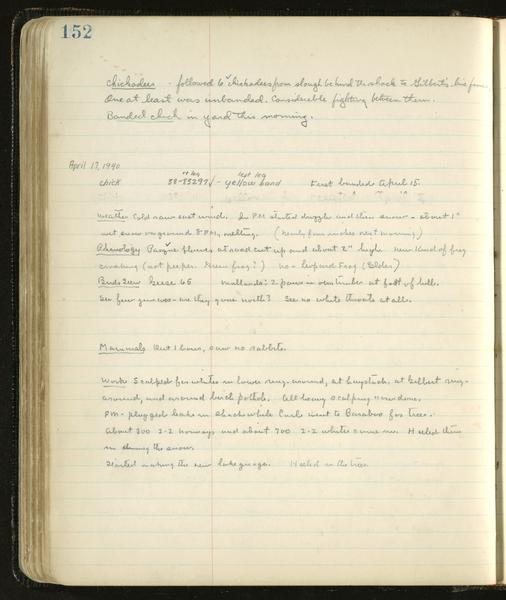 152
Chickadees - followed 6 chickadees from slough behind the shack to Gilbert's
One at least was unbanded. Considerable fighting between them.
Banded chick in yard this morning.
April 17, 1940
rt leg left leg
Chick 38-83297 - yellow band First banded April 15.
Weather Cold raw east wind. In PM started drizzle and then snow - about 1"
wet snow on ground 8 PM, melting. (nearly four inches next morning.)
Phenology Pasque flowers at road cut up and about 2" high. New kind of frog
croaking (not peeper. Green frog?) no - leopard Frog (Elder)
Birds Seen Geese 65 mallards: 2 pairs in timber at foot of hill.
See few juncos - are they gone north? See no white throats at all.
Mammals Out 1 hour, saw no rabbits.
Work Scalped for whites in lower ring-around, at haystack, at Gilbert ring-
around, and around birch pothole. All heavy scalping now done.
PM - plugged leaks in shack while Carl went to Baraboo for trees.
About 300 2-2 norways and about 700 2-2 whites came in. Heeled them
in during the snow.
Started making the new lake gauge. Heeled in the trees